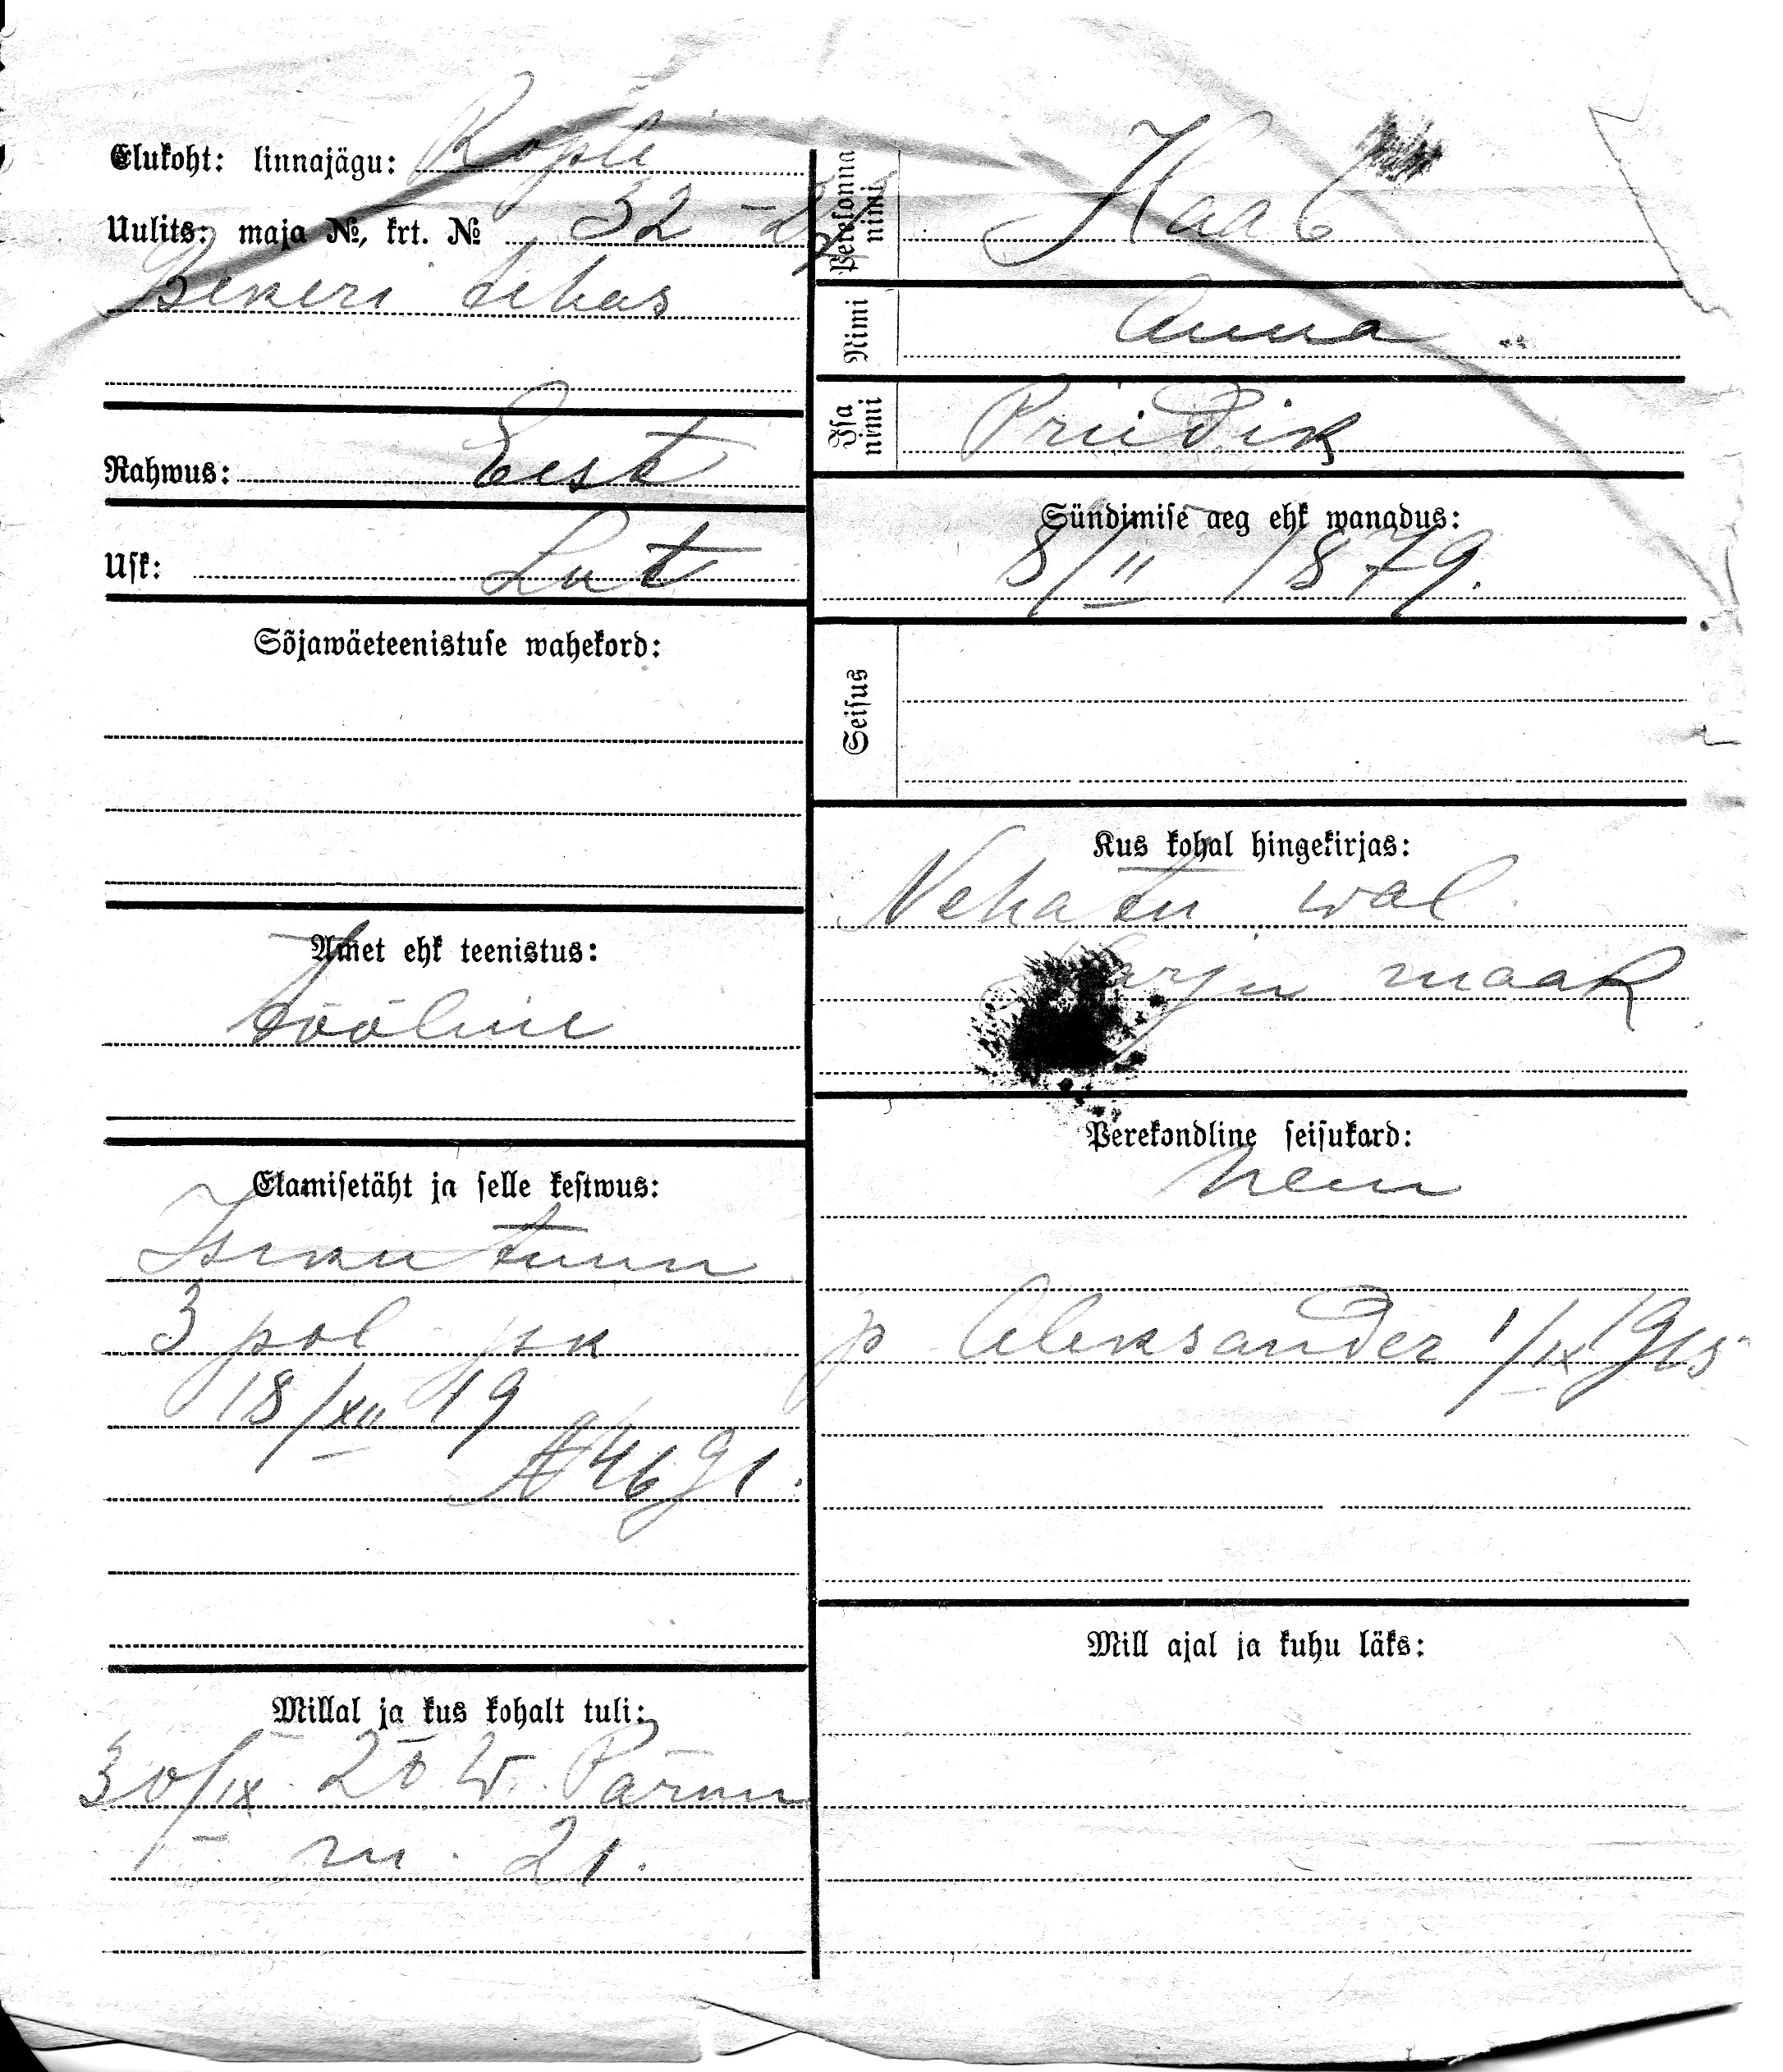 Elukoht: linnajägu: Kopli
Uulits: maja №, krt. № 32 - 27
Bekeri tehas
Rahwus: Eest
Usk: Lut
Sõjawäeteenistuse wahekord:
Amet ehk teenistus:
tööline
Elamisetäht ja selle kestwus:
Isiku tunn
3 pol jsk
18/XII 19
№ 4691.
Millal ja kus kohalt tuli:
30/IX 20 W. Pärnu
m. 21.
Perekonna nimi Haab
Nimi Anna
Isa nimi Priidik
Sündimise aeg ehk wanadus:
8/II 1879.
Seisus
Kus kohal hingekirjas:
Nehatu wal
Harju maak
Perekondline seisukord:
p Aleksander 1/IX 1915
Mill ajal ja kuhu läks: